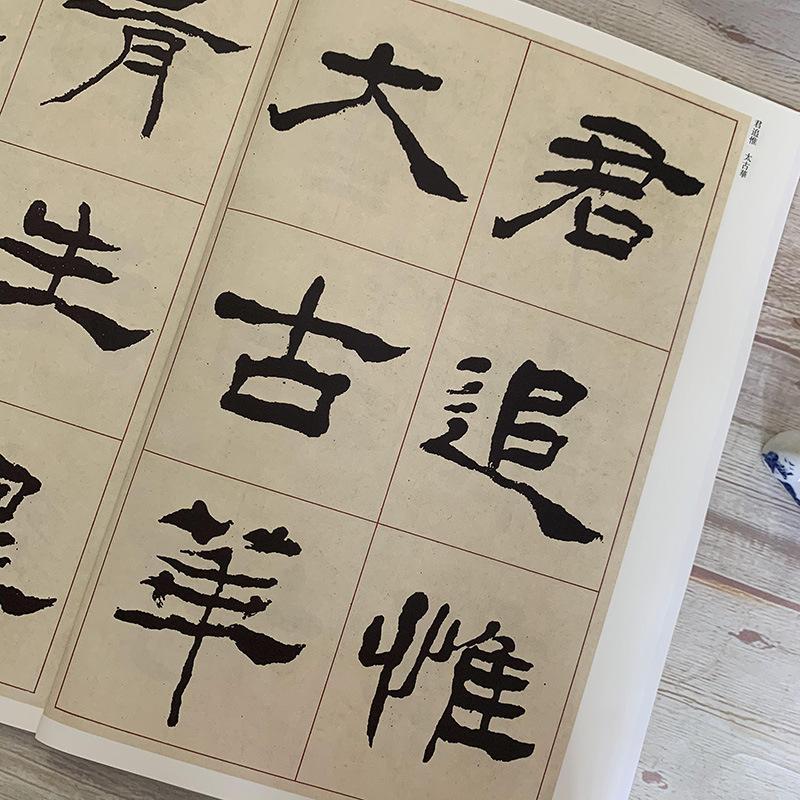 君追惟
大古華
生
君追惟 太古華